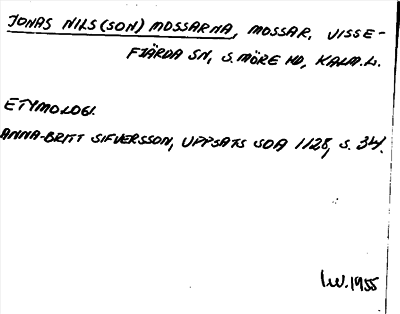 JONAS NILS(SON) MOSSARNA, MOSSAR, VISSE-
FJÄRDA SN, S. MÖRE HD, KALM. L.
ETYMOLOGI.
ANNA-BRITT SIFVERSSON, UPPSATS SOA 1128, S. 34.
I.W. 1955